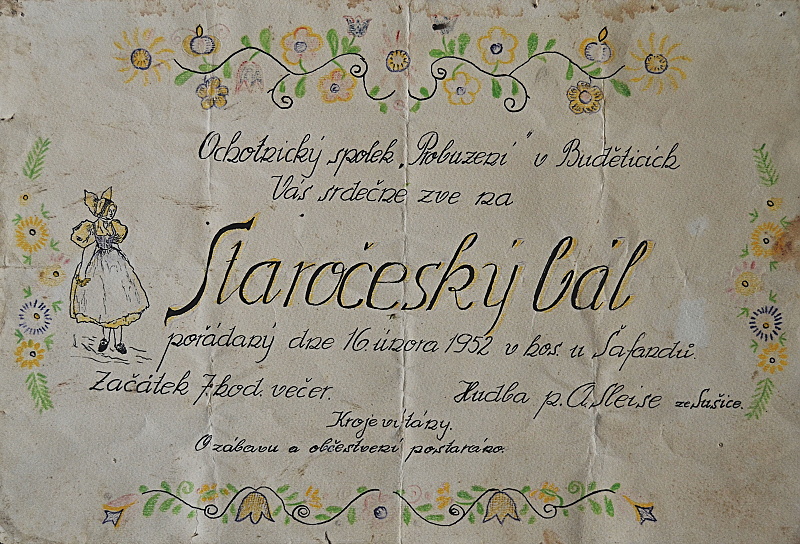 Ochotnický spolek „Probuzení" v Buděticích
Vás srdečne zve na
Staročeský bál
pořádaný dne 16. února 1952 v hos. u Šafandů.
Začátek 7. hod. večer.
Hudba p. A. Sleise ze Sušice.
Kroje vítány.
O zábavu a občestvení postaráno.